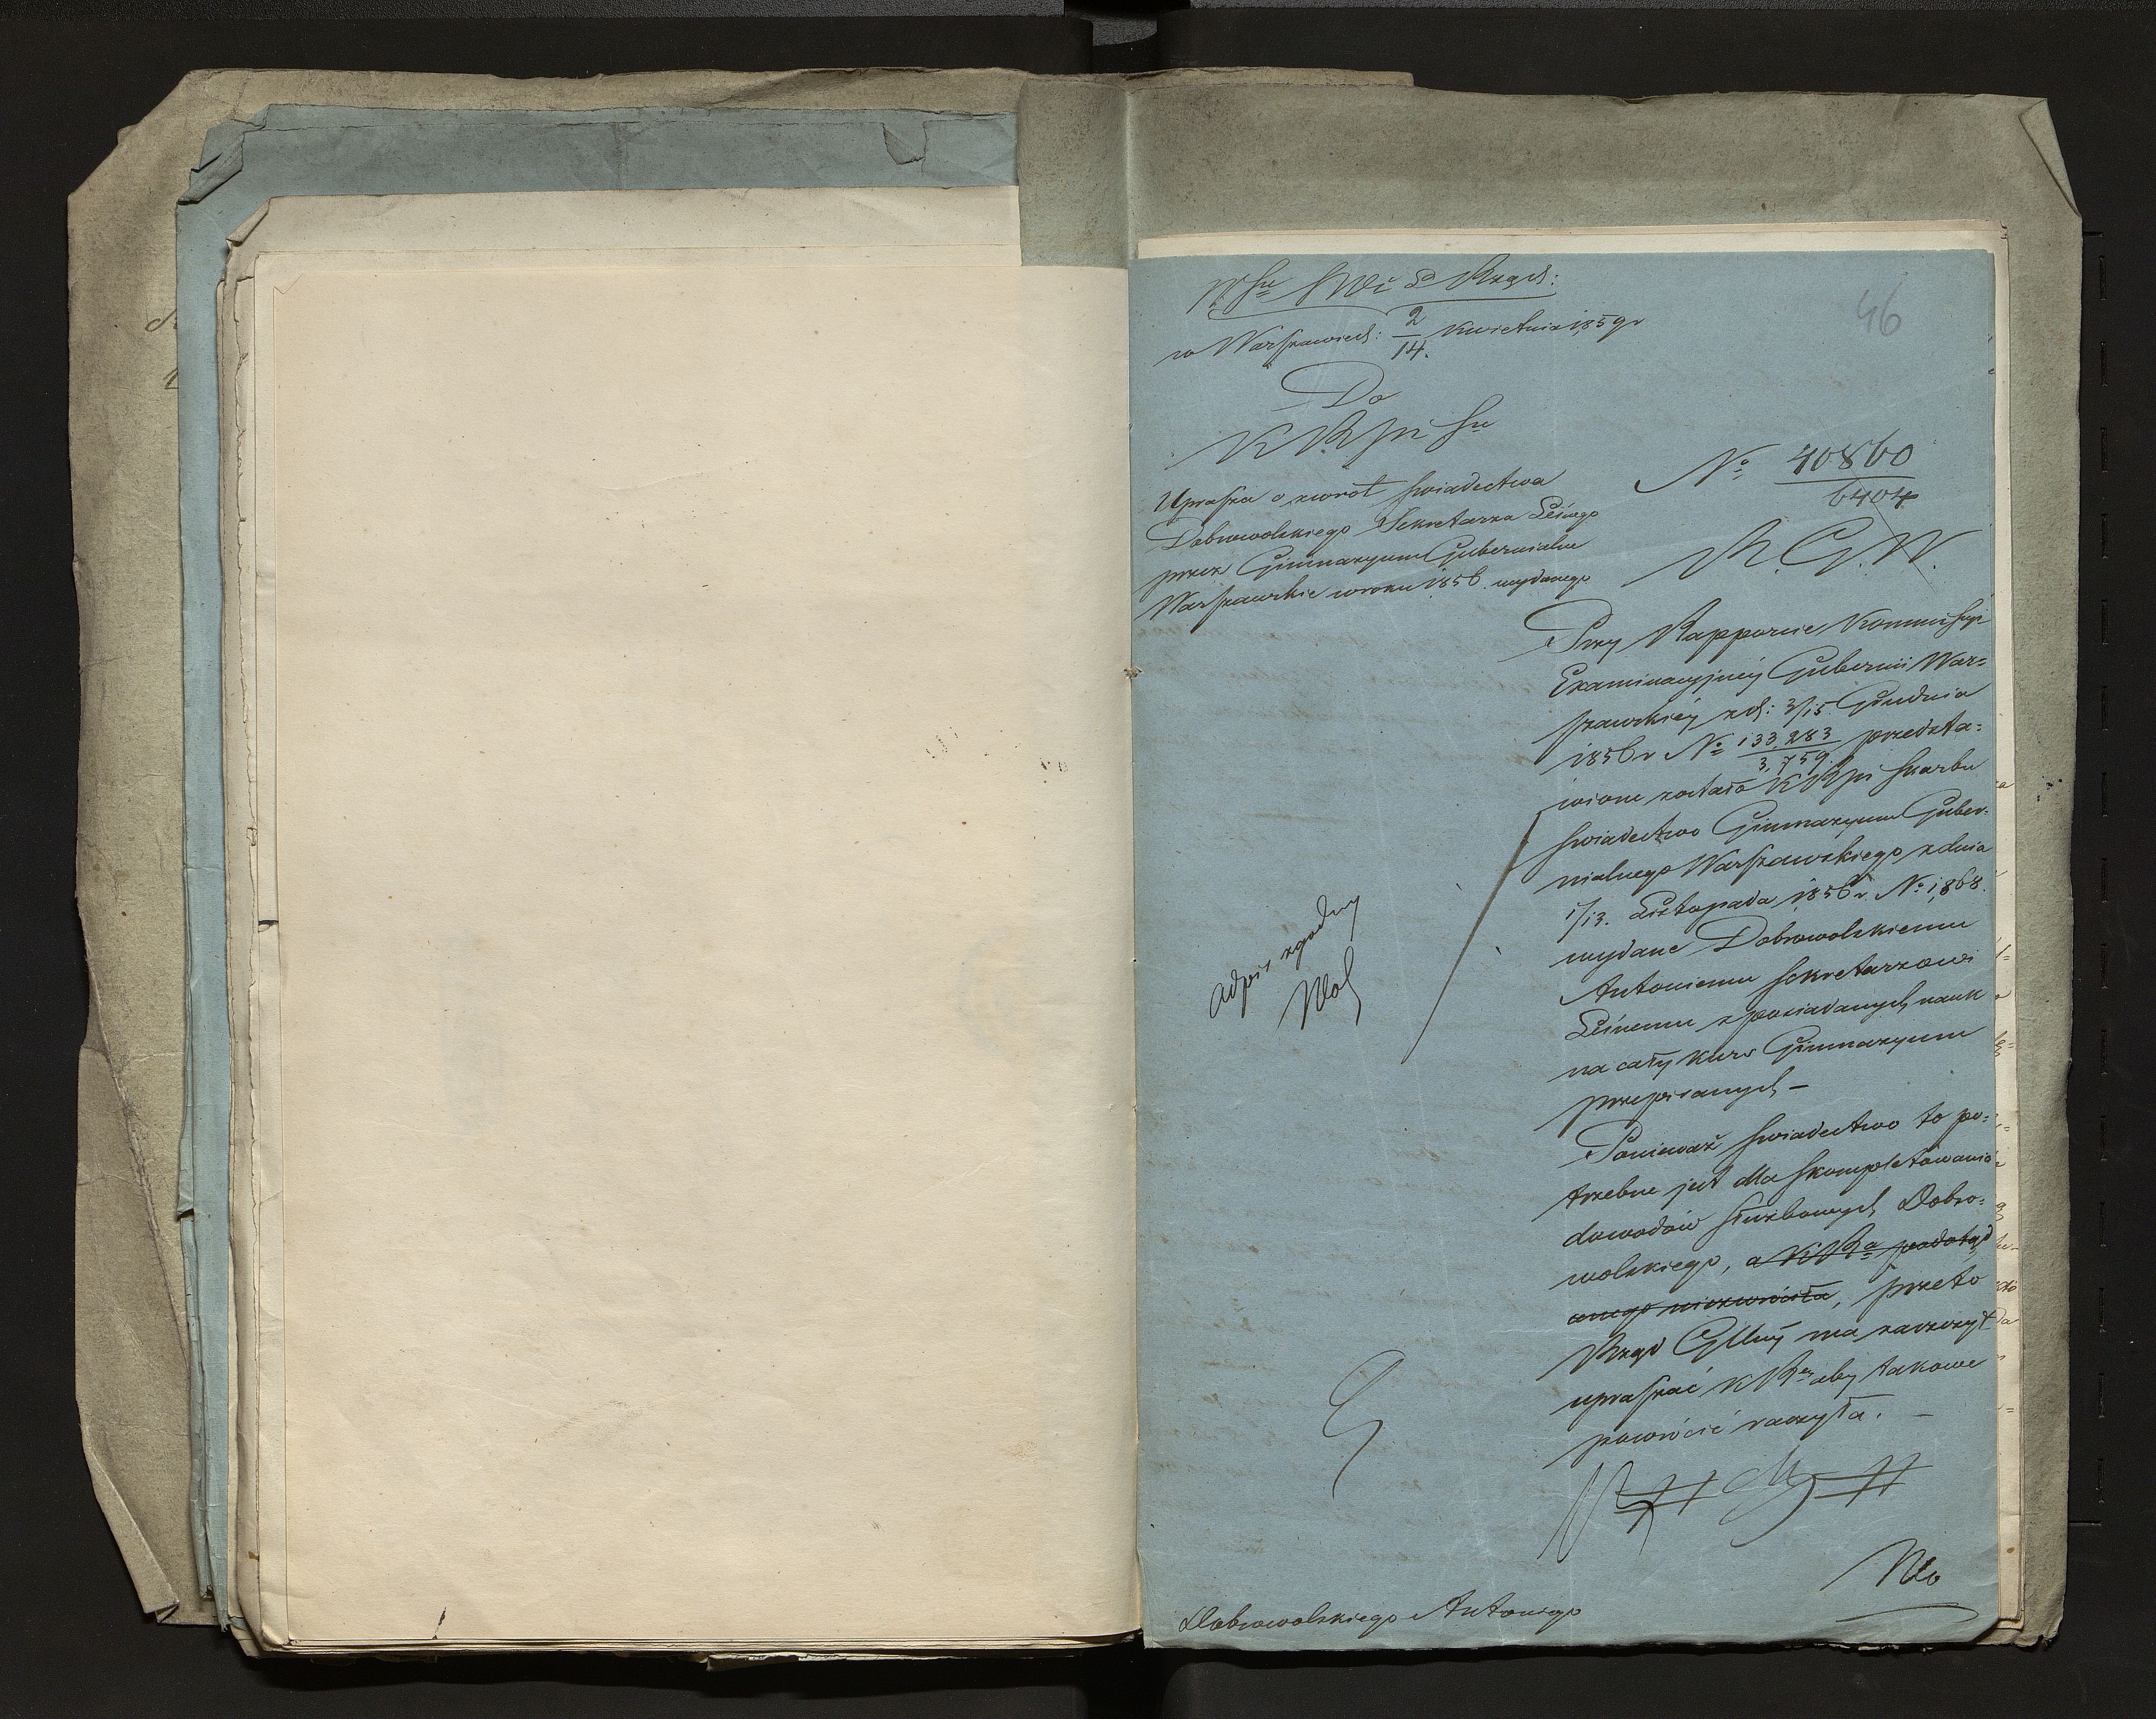 46
w Warszawie d: 2/14. Kwietnia 1859 r
Do
K R P i S^u
Uprasza o zwrot swiadectwa
Dobrowolskiego Sekretarza Leśnego
przez Gimnazyum Gubernialne
Warszawskie w roku 1856 wydanego
N^o 40860/6404
R. G. W.
Przy Rapporcie Kommissyi
Examinacyjnéj Gubernii War=
szawskiéj z d: 3/15 Grudnia
1856 r N^o 133,283/3,759 przedsta=
wione zostało K R P i Skarbu
swiadectwo Gimnazyum Guber=
nialnego Warszawskiego z dnia
1/13. Listopada 1856 r. N^o 1,868.
wydane Dobrowolskiemu
Antoniemu Sekretarzowi
Leśnemu z posiadanych nauk
na cały kurs Gimnazyum
przepisanych –
Ponieważ swiadectwo to po=
trzebne jest dla skompletowania
dowodów służbowych Dobro=
wolskiego, a K R^a podotąd
onego niezwróciła, przeto
Rząd Gllny ma zaszczyt
upraszać K R^ę aby takowe
powrócić raczyła. –
odpis zgodny
Dobrowolskiego Antoniego